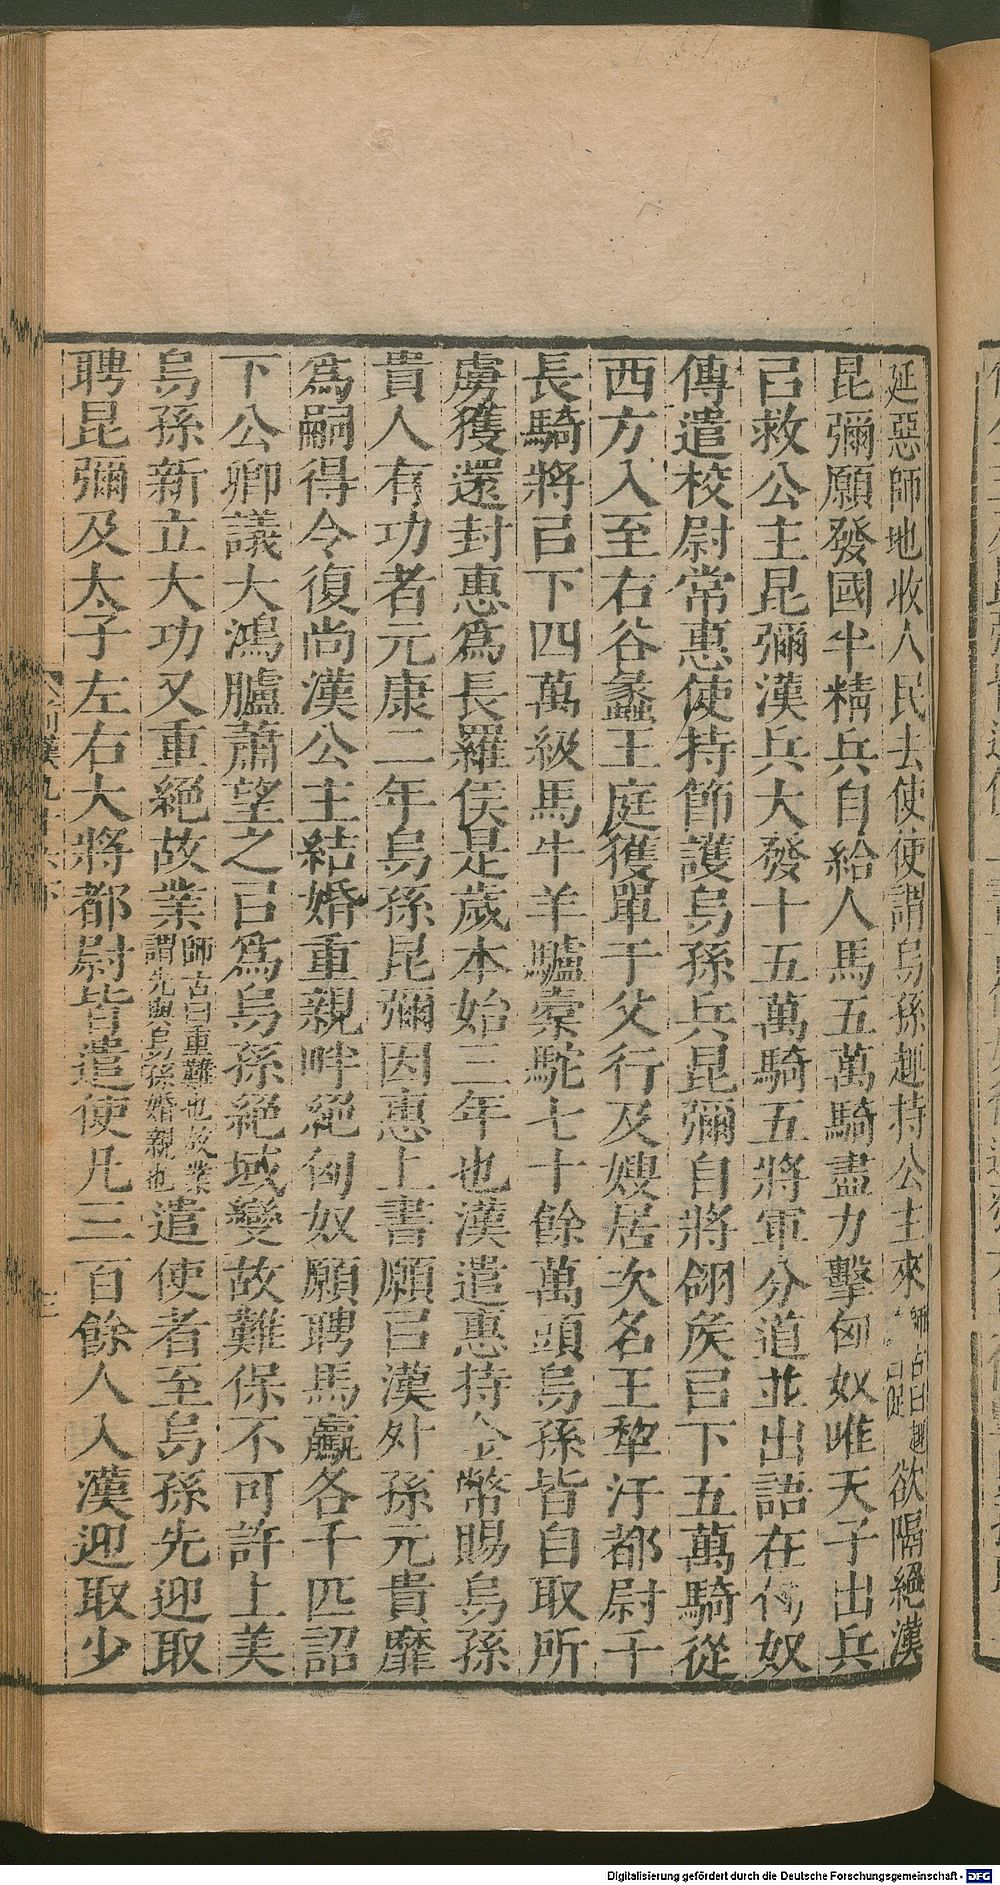 延惡師地收人民去使使謂烏孫趣持公主來師古曰趣欲隔絕漢
昆彌願發國半精兵自給人馬五萬騎盡力擊匈奴唯天子出兵
㠯救公主昆彌漢兵大發十五萬騎五將軍分道並出語在匈奴
傳遣校尉常惠使持節護烏孫兵昆彌自將翖矦㠯下五萬騎從
西方入至右谷蠡王庭獲單于父行及嫂居次名王犂汙都尉千
長騎將㠯下四萬級馬牛羊驢橐駝七十餘萬頭烏孫皆自取所
虜獲還封惠爲長羅侯是歲本始三年也漢遣惠持金幣賜烏孫
貴人有功者元康二年烏孫昆彌因惠上書願㠯漢外孫元貴靡
爲嗣得令復尚漢公主結婚重親畔絕匈奴願聘馬驘各千匹詔
下公卿議大鴻臚蕭望之㠯爲烏孫絕域變故難保不可許上美
烏孫新立大功又重絕故業師古曰重難也故業謂先與烏孫婚親也遣使者至烏孫先迎取
聘昆彌及太子左右大將都尉皆遣使凡三百餘人入漢迎取少
Digitalisierung gefördert durch die Deutsche Forschungsgemeinschaft - DFG